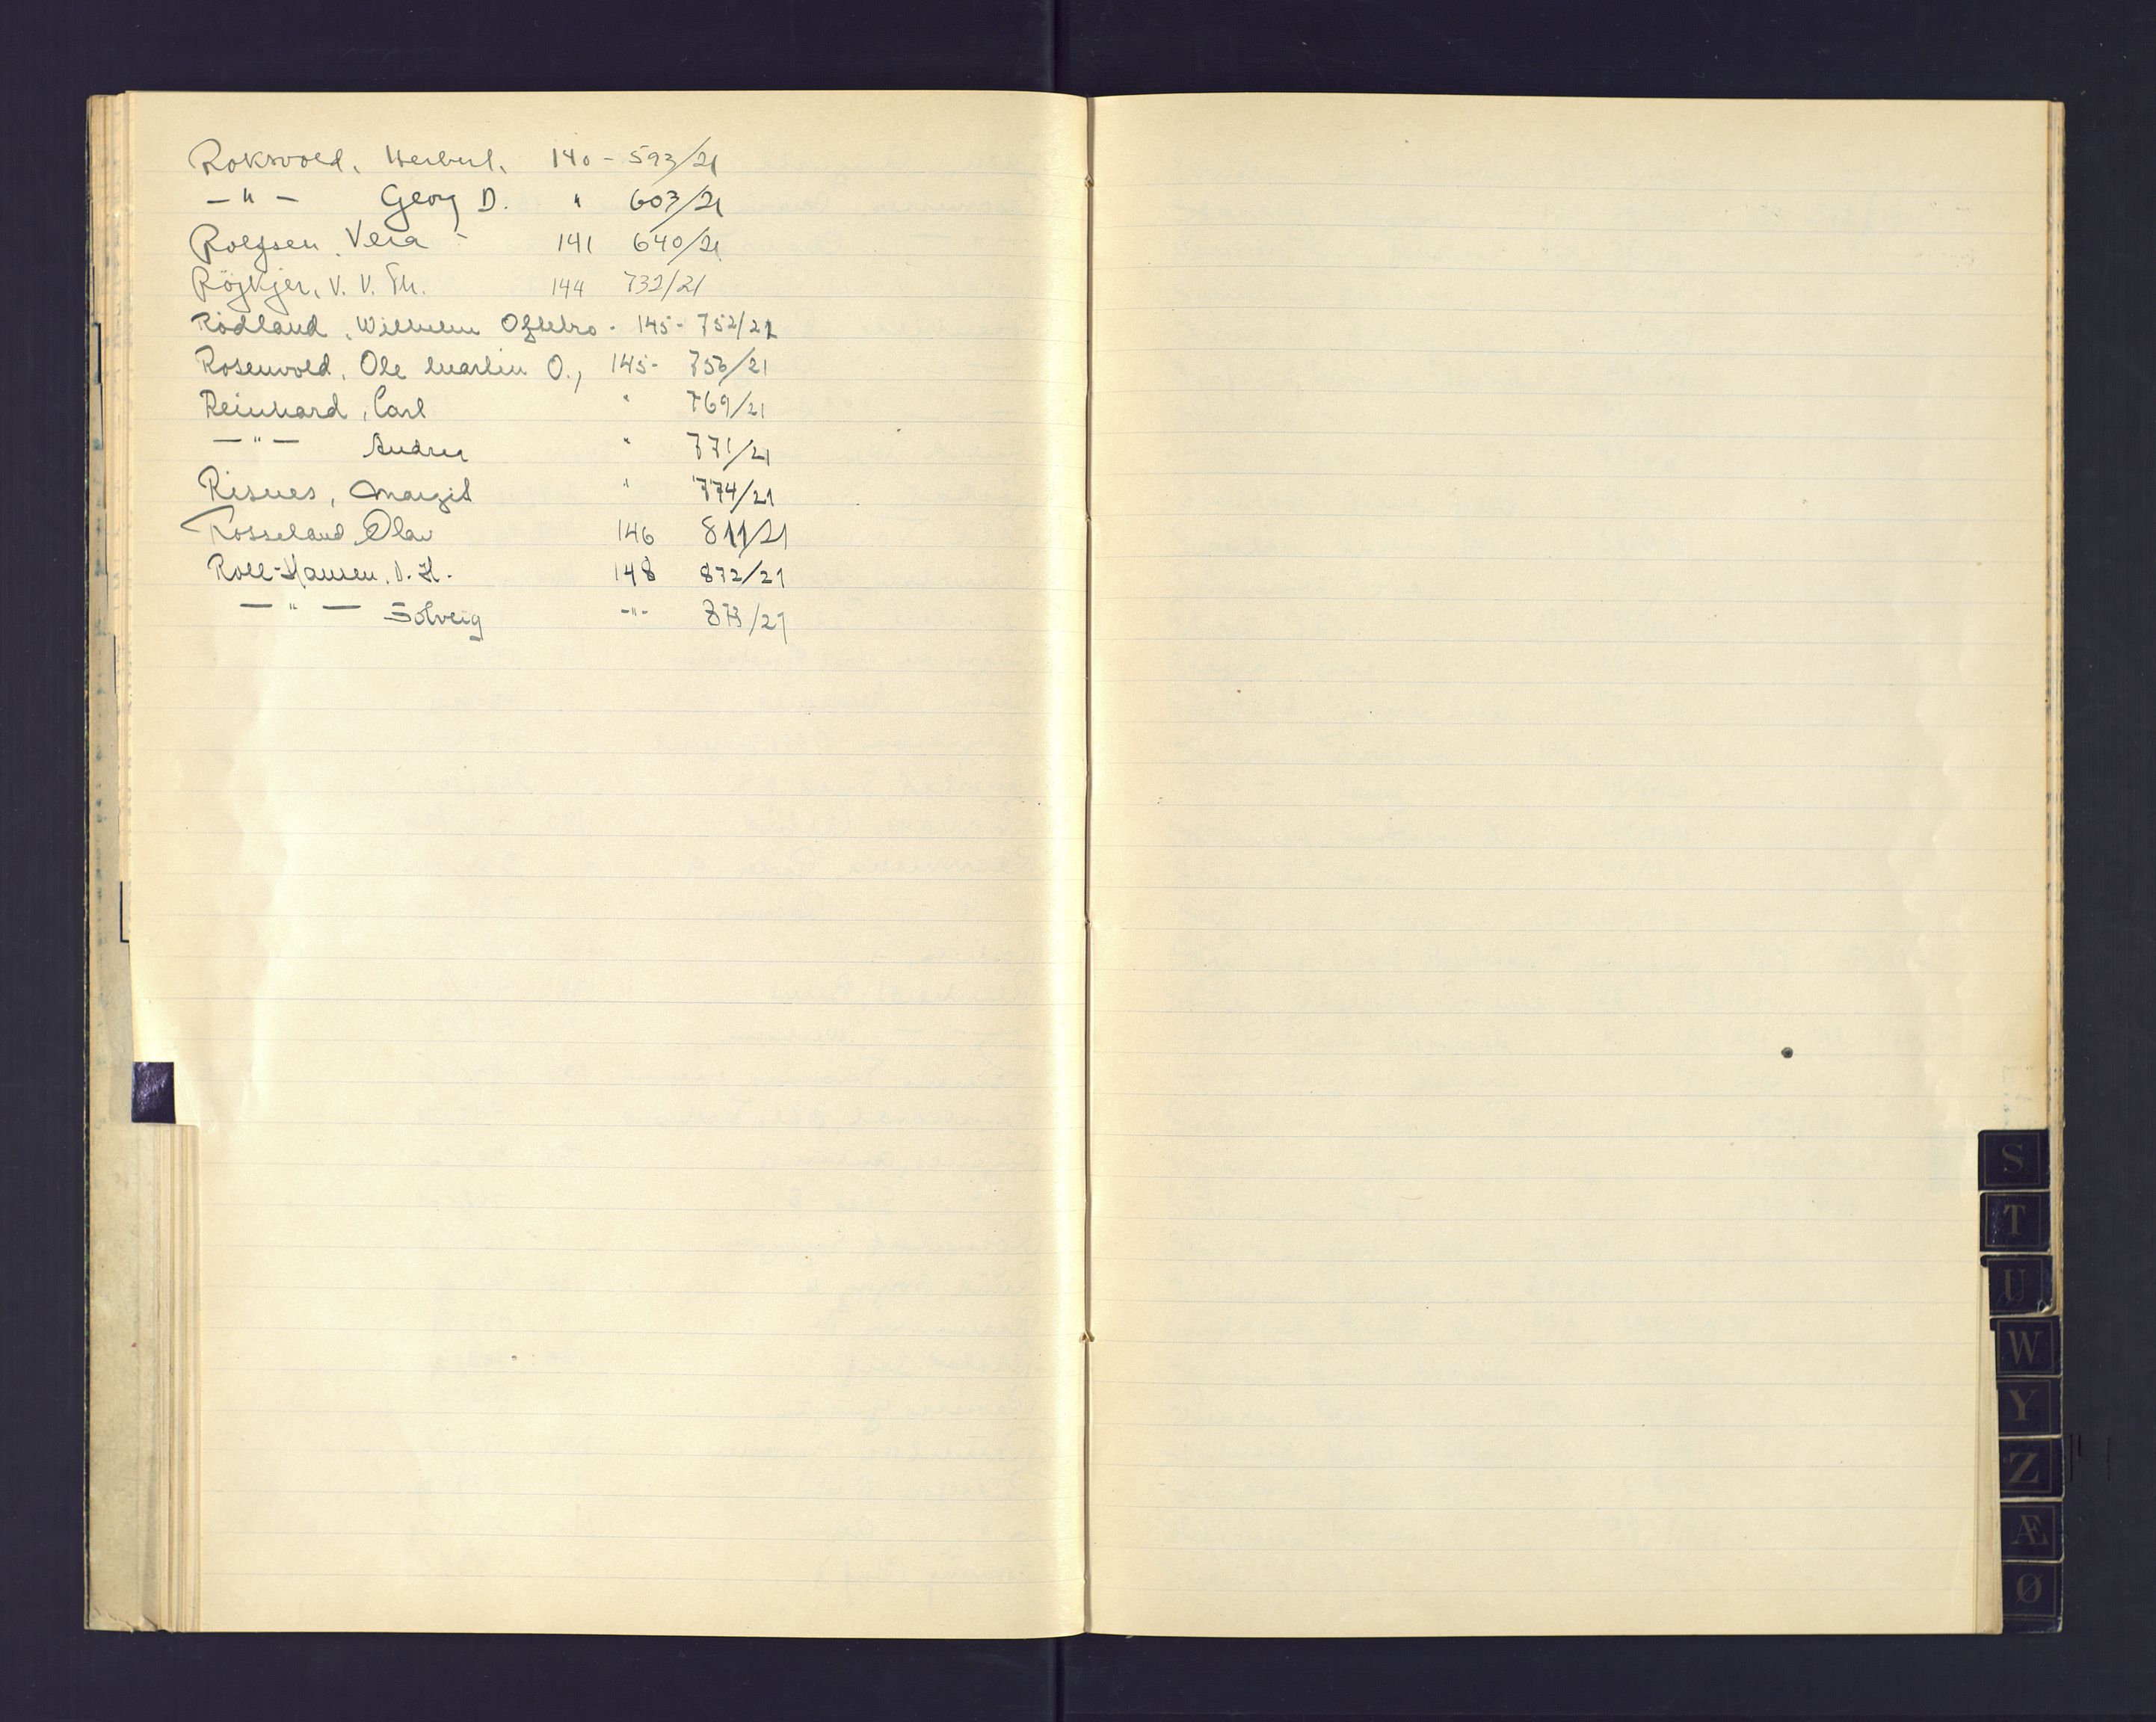 Roksvold, Herbert, 140 - 593/21
- " - Georg D. " 603/21
Rolfsen, Vera - 141 640/21
Röjkjer, V. V. Th. 144 732/21
Rödland, Wilhelm Oftebro - 145 - 752/21
Rosenvold, Ole Martin O., 145 - 756/21
Reinhard, Carl " 769/21
- " - Andrea " 771/21
Risnes, Margit " 774/21
Rosseland, Olav 146 811/21
Roll-Hansen, D. H. 148 872/21
- " - Solveig -"- 873/21
S
T
U
W
Y
Z
Æ
Ø